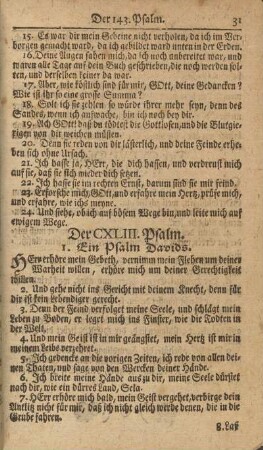 Der 143. Psalm. 31
15. Es war dir mein Gebeine nicht verholen, da ich im Ver-
borgen gemacht ward, da ich gebildet ward unten in der Erden.
16. Deine Augen sahen mich, da ich noch unbereitet war, und
waren alle Tage auf dein Buch geschrieben, die noch werden sol-
ten, und derselben keiner da war.
17. Aber, wie köstlich sind für mir, GOtt, deine Gedancken?
Wie ist ihr so eine grosse Summa?
18. Solt ich sie zehlen so würde ihrer mehr seyn, denn des
Sandes, wenn ich aufwache, bin ich noch bey dir.
19. Ach GOtt daß du tödtest die Gottlosen, und die Blutgie-
rigen von dir weichen müsten.
20. Denn sie reden von dir lästerlich, und deine Feinde erhe-
ben sich ohne Ursach.
21. Ich hasse ja, HErr, die dich hassen, und verdreust mich
auf sie, daß sie sich wider dich setzen.
22. Ich hasse sie im rechten Ernst, darum sind sie mir feind.
23. Erforsche mich, GOtt, und erfahre mein Hertz, prüfe mich,
und erfahre, wie ichs meyne.
24. Und siehe, ob ich auf bösem Wege bin, und leite mich auf
ewigem Wege.
Der CXLIII. Psalm.
1. Ein Psalm Davids.
HErr erhöre mein Gebeth, vernimm mein Flehen um deiner
Warheit willen, erhöre mich um deiner Gerechtigkeit
willen.
2. Und gehe nicht ins Gericht mit deinem Knecht, denn für
dir ist kein Lebendiger gerecht.
3. Denn der Feind verfolget meine Seele, und schlägt mein
Leben zu Boden, er leget mich ins Finster, wie die Todten in
der Welt.
4. Und mein Geist ist in mir geängstet, mein Hertz ist mir in
meinem Leibe verzehret.
5. Ich gedencke an die vorigen Zeiten, ich rede von allen dei-
nen Thaten, und sage von den Wercken deiner Hände.
6. Ich breite meine Hände aus zu dir, meine Seele dürstet
nach dir, wie ein dürres Land, Sela.
7. HErr erhöre mich bald, mein Geist vergehet, verbirge dein
Antlitz nicht für mir, daß ich nicht gleich werde denen, die in die
Grube fahren.
8. Laß